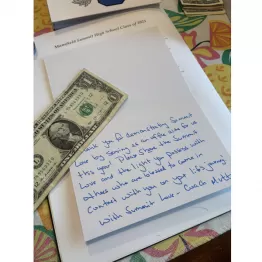 Mansfield Summit High School Class of
Thank you for demonstrating Summit
Love by serving as an office aide for us
this year! Please share the Summit
Love and the light you possess with
others who are blessed to come in
contact with you on your life's journey.
With Summit Love -
1